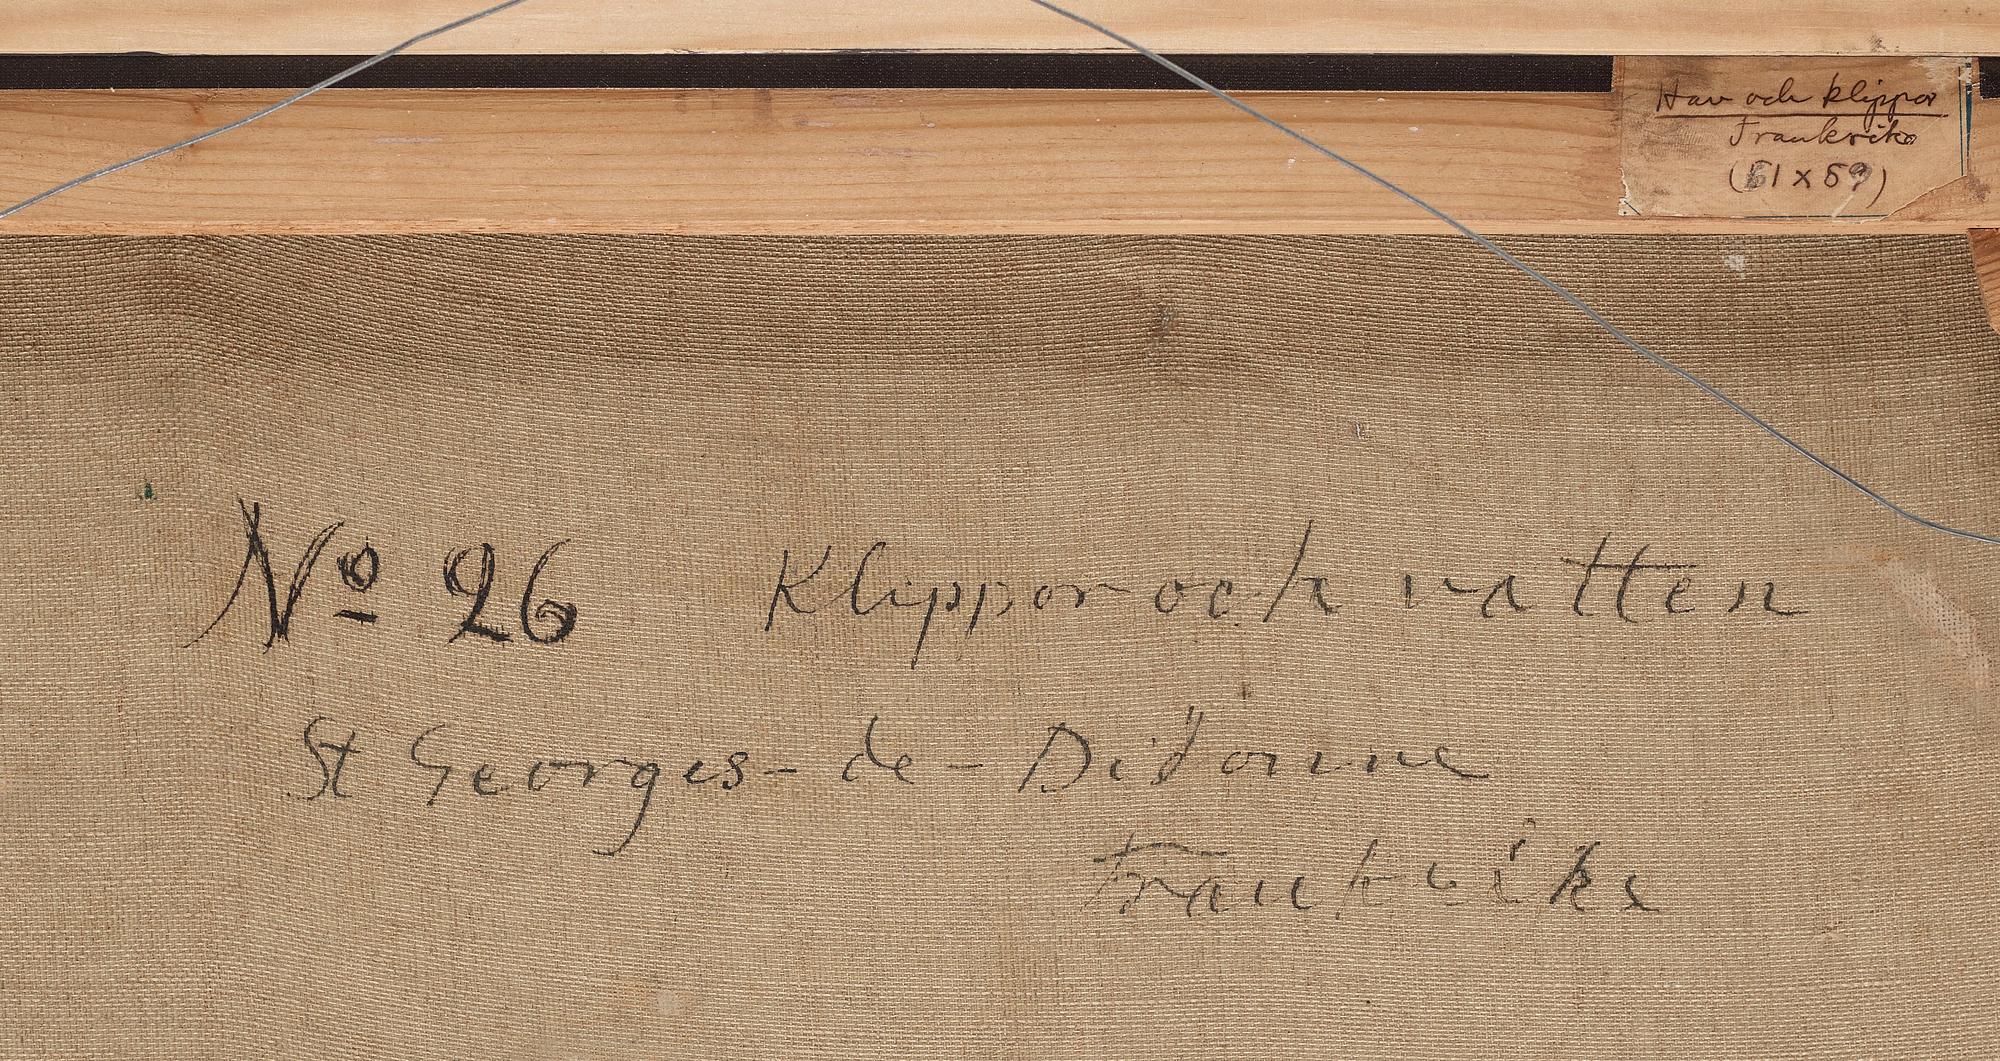 Hav och klippor
Frankrike
(51 x 59)
Nº 26 Klippor och vatten
St Georges-de-Didonne
Frankrike